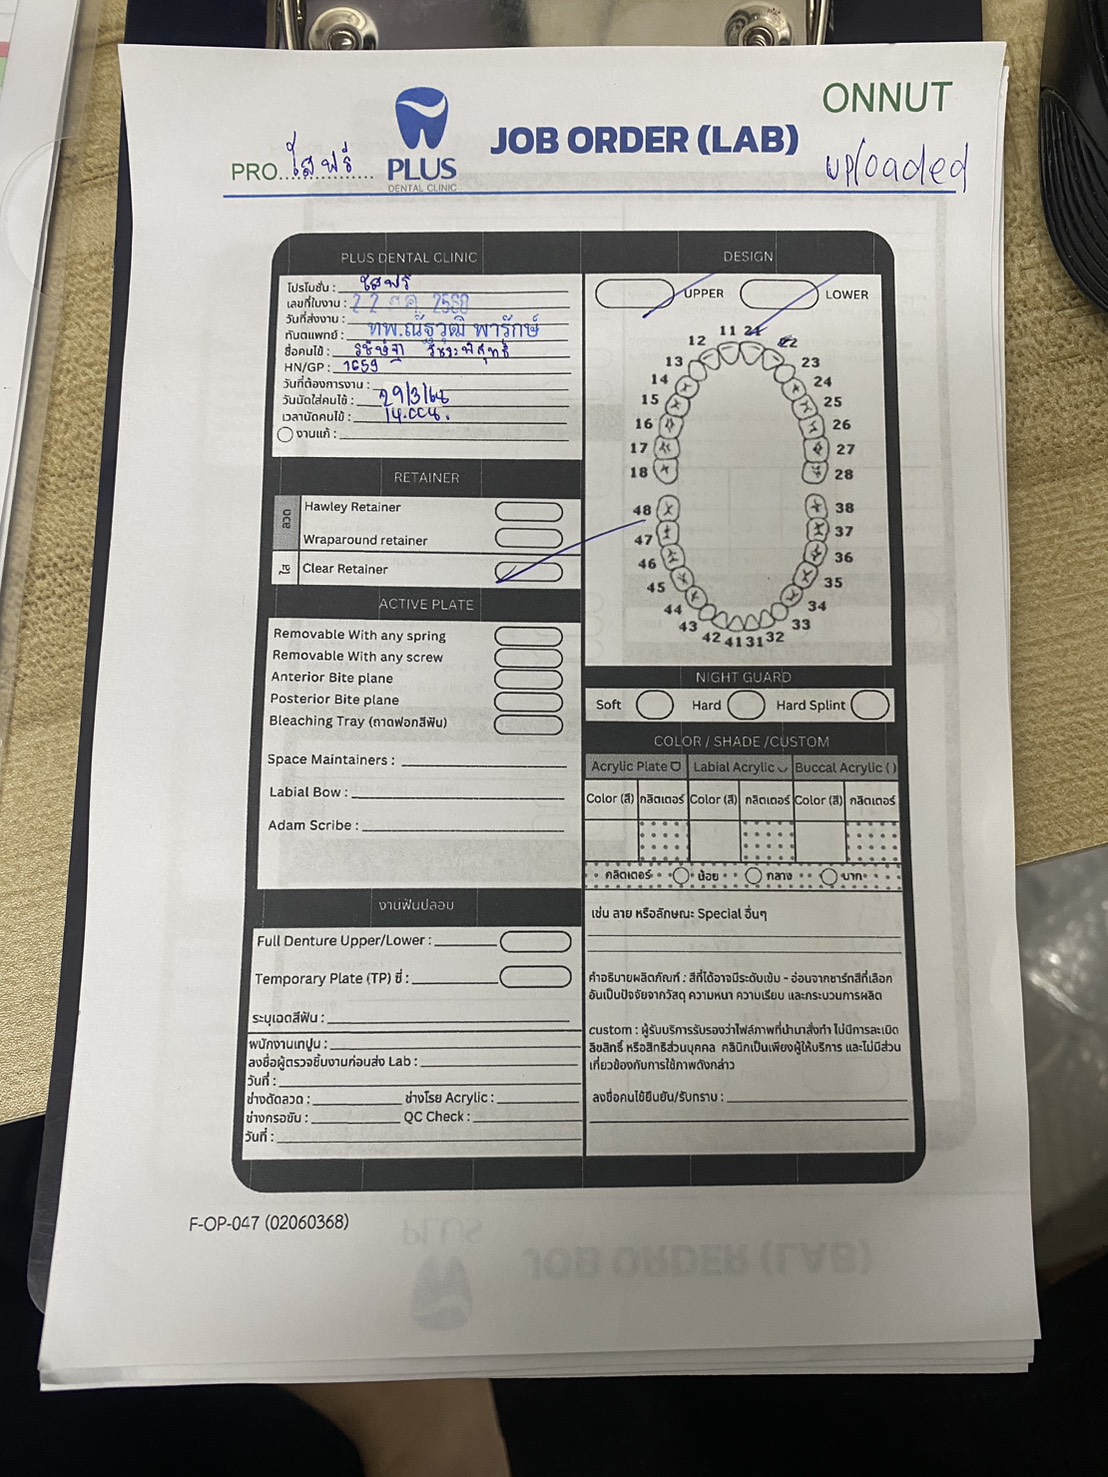 ONNUT
PRO. ใสฟรี PLUS JOB ORDER (LAB) uploaded
DENTAL CLINIC
PLUS DENTAL CLINIC
โปรโมชั่น : ใสฟรี
เลขที่ใบงาน :
วันที่ส่งงาน :
ทันตแพทย์ : ทพ.ณัฐวุฒิ พารักษ์
ชื่อคนไข้ :
HN/GP : 1659
วันที่ต้องการงาน :
วันนัดใส่คนไข้ :
เวลานัดคนไข้ :
งานแก้ :
RETAINER
ลวด
Hawley Retainer
Wraparound retainer
ใส
Clear Retainer
ACTIVE PLATE
Removable With any spring
Removable With any screw
Anterior Bite plane
Posterior Bite plane
Bleaching Tray (ถาดฟอกสีฟัน)
Space Maintainers :
Labial Bow :
Adam Scribe :
งานฟันปลอม
Full Denture Upper/Lower :
Temporary Plate (TP) ซี่ :
ระบุเฉดสีฟัน :
พนักงานเทปูน :
ลงชื่อผู้ตรวจชิ้นงานก่อนส่ง Lab :
วันที่ :
ช่างดัดลวด : ช่างโรย Acrylic :
ช่างกรอขัน : QC Check :
วันที่ :
DESIGN
UPPER LOWER
11 21
12 22
13 23
14 24
15 25
16 26
17 27
18 28
48 38
47 37
46 36
45 35
44 34
43 33
42 41 31 32
NIGHT GUARD
Soft Hard Hard Splint
COLOR / SHADE /CUSTOM
Acrylic Plate Labial Acrylic Buccal Acrylic ( )
Color (สี) กลิตเตอร์ Color (สี) กลิตเตอร์ Color (สี) กลิตเตอร์
กลิตเตอร์ น้อย กลาง มาก
เช่น ลาย หรือลักษณะ Special อื่นๆ
คำอธิบายผลิตภัณฑ์ : สีที่ได้อาจมีระดับเข้ม - อ่อนจากชาร์ทสีที่เลือก
อันเป็นปัจจัยจากวัสดุ ความหนา ความเรียบ และกระบวนการผลิต
custom : ผู้รับบริการรับรองว่าไฟล์ภาพที่นำมาสั่งทำ ไม่มีการละเมิด
ลิขสิทธิ์ หรือสิทธิส่วนบุคคล คลินิกเป็นเพียงผู้ให้บริการ และไม่มีส่วน
เกี่ยวข้องกับการใช้ภาพดังกล่าว
ลงชื่อคนไข้ยืนยัน/รับทราบ :
F-OP-047 (02060368)